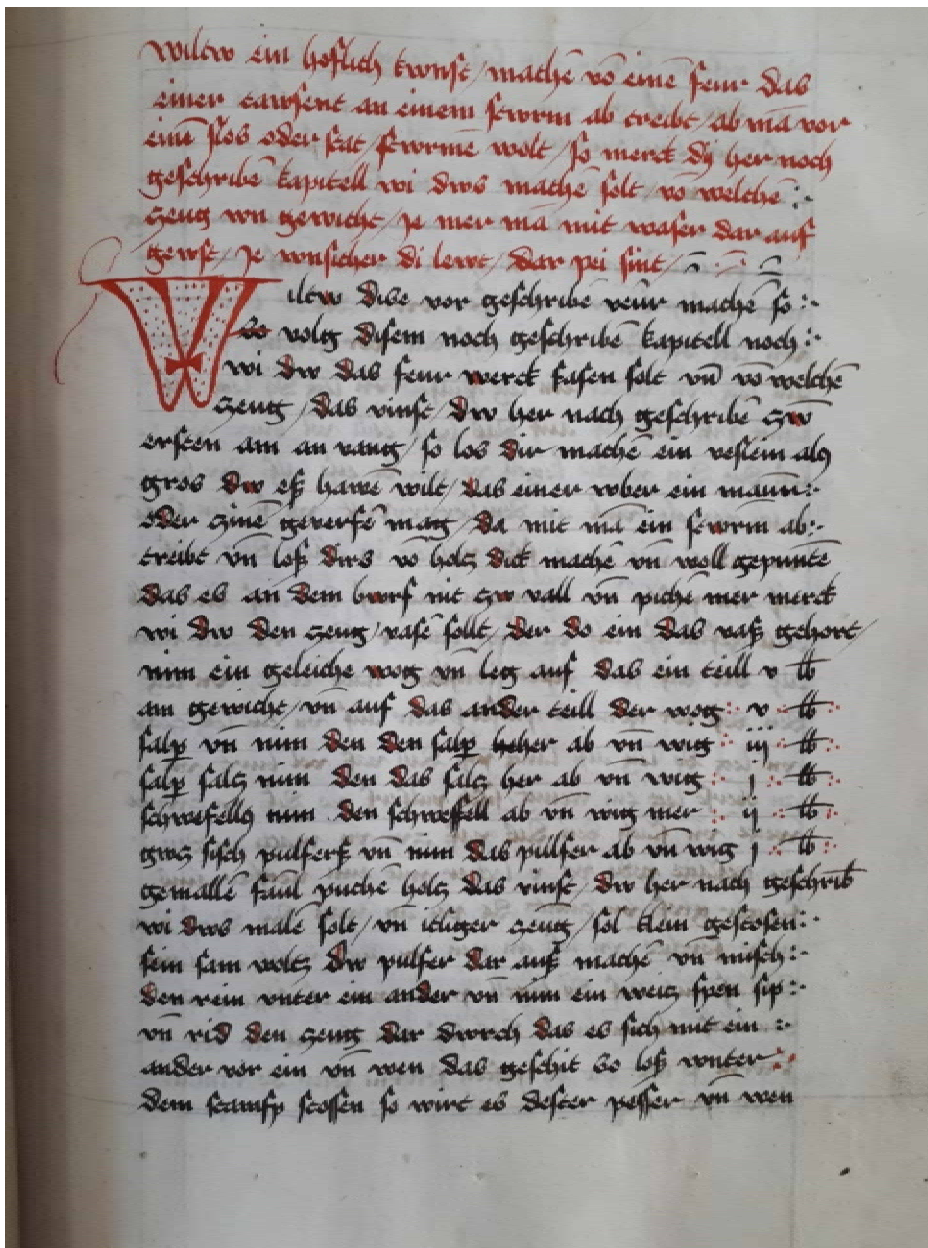 wiltw ein hoflich kwnst / machē vō einē feur das
einer tawsent an einem stwrm ab treibt / ab mā vor
einē slos oder stat / stwrmē wolt / so merck dÿ her noch
geschribē kapitell wi dws machē solt / vō welchē :
zeug vn gewicht / je mer mā mit waser dar auf
gewst / je vnsicher di lewt / dar pei sint /
Wiltw dise vor geschribē veūr machē so :
So volg disem noch geschribē kapitell noch :
wi dw das feur werck fasen solt vn̄ vō welchē
zeug / das vinst / dw her nach geschribē zw̄
ersten am an vang / so los dir machē ein veslein als
gros dw eß hawē wilt / das einer vber ein maūn :
oder zinē geverfē mag / da mit mā ein stwrm ab :
treibt vn̄ loß dirs vō holtz dick machē vn̄ woll gepuntē
das es an dem bwrf nit zw vall vn̄ pichē mer merck
wi dw den zeug / vasē sollt / der do ein das vaß gehort /
nim ein geleiche wog vn̄ leg auf das ein teill v lb
am gewicht / vn̄ auf das ander teill der wog : v : lb
salp̄ vn̄ nim den den salp̄ heher ab vn̄ wig : iij : lb
salp̄ saltz nim den das saltz her ab vn̄ wig : j : lb :
schwefells nim den schweffell ab vn̄ wig mer : ij : lb :
gwtz fisch pulferß vn̄ nim das pulfer ab vn̄ wig j : lb :
gemallē faūl puchē holtz das vinst / dw her nach geschrib̄
wi dws malē solt / vn̄ itliger zeūg / sol klein gestosen :
sein sam woltz dw pulfer dar auß machē vn̄ misch :
den rein vnter ein ander vn̄ nim ein weitz spen sip :
vn̄ rid den zeug dar dwrch das es sich mit ein :
ander vor ein vn̄ wen das geschit So loß vnter :
dem stampf stossen so wirt es dester pesser vn̄ wen